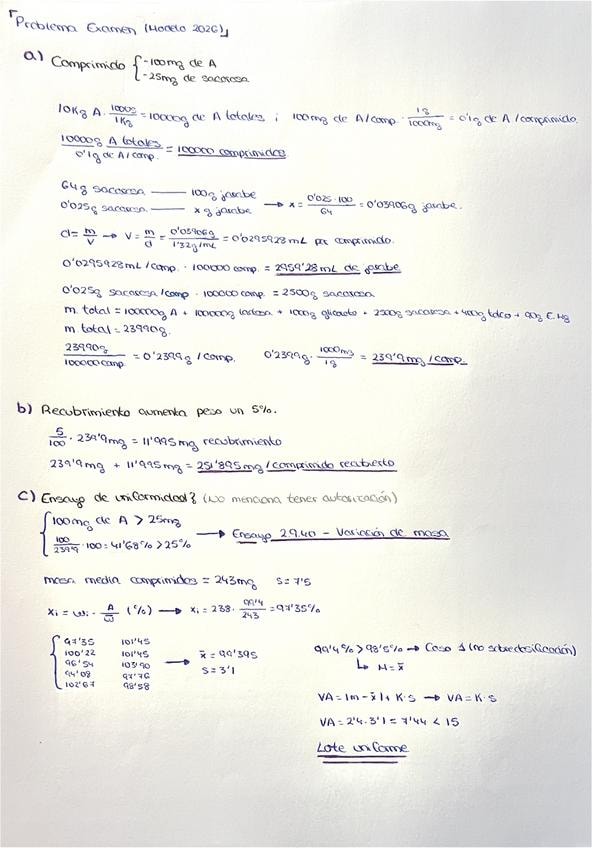 「Problema Examen (Modelo 2026)」
a) Comprimido { -100mg de A
-25mg de sacarosa
10Kg A · 1000g/1Kg = 10000g de A totales ; 100mg de A/comp · 1g/1000mg = 0'1g de A/comprimido.
10000g A totales / 0'1g de A/comp. = 100000 comprimidos
64g sacarosa —— 100g jarabe
0'025g sacarosa —— x g jarabe → x = 0'025·100/64 = 0'03906g jarabe.
d = m/V → V = m/d = 0'03906g / 1'32g/mL = 0'0295928mL por comprimido.
0'0295928mL/comp. · 100000 comp. = 2959'28mL de jarabe
0'025g sacarosa/comp · 100000 comp. = 2500g sacarosa
m total = 10000g A + 10000g lactosa + 1000g glicolato + 2500g sacarosa + 400g talco + 90g E. Mg
m total = 23990g.
23990g / 100000 comp. = 0'2399g/comp. 0'2399g · 1000mg/1g = 239'9mg/comp.
b) Recubrimiento aumenta peso un 5%.
5/100 · 239'9mg = 11'995mg recubrimiento
239'9mg + 11'995mg = 251'895mg/comprimido recubierto
c) Ensayo de uniformidad? (No menciona tener autorización)
{ 100mg de A > 25mg
100/239'9 · 100 = 41'68% > 25% → Ensayo 2.9.40 - Variación de masa
masa media comprimidos = 243mg s = 7'5
xi = wi · A/w̄ (%) → xi = 238 · 99'4/243 = 97'35%
{ 97'35 101'45
100'22 101'45
96'54 103'90
94'08 97'76
102'67 98'58
→ x̄ = 99'395
s = 3'1
99'4% > 98'5% → Caso 1 (no sobredosificación)
↳ M = x̄
VA = |M - x̄| + K·s → VA = K·s
VA = 2'4·3'1 = 7'44 < 15
Lote uniforme